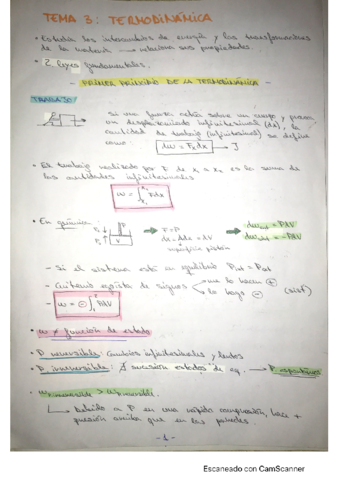 TEMA 3: TERMODINÁMICA
• Estudia los intercambios de energía y las transformaciones
de la materia → relaciona sus propiedades.
• 2 leyes fundamentales.
- PRIMER PRINCIPIO DE LA TERMODINÁMICA -
TRABAJO
si una fuerza actúa sobre un cuerpo y provoca
un desplazamiento infinitesimal (dx), la
cantidad de trabajo (infinitesimal) se define
como: dw = Fxdx → J
• El trabajo realizado por F de x1 a x2 es la suma de
las cantidades infinitesimales
w = ∫ Fxdx
• En química:
F = P·A
A·dx = dV
superficie pistón
- Si el sistema está en equilibrio
- Criterio egoísta de signos
me lo hacen ⊕
lo hago ⊖ (sist)
• w ≠ función de estado
• P reversible: Cambios infinitesimales y lentos
• P irreversible: ∄ sucesión estados de eq. → P espontáneos
• w irreversible > w reversible.
debido a P en una rápida compresión, hace +
presión arriba que en las paredes.
- 1 -
Escaneado con CamScanner